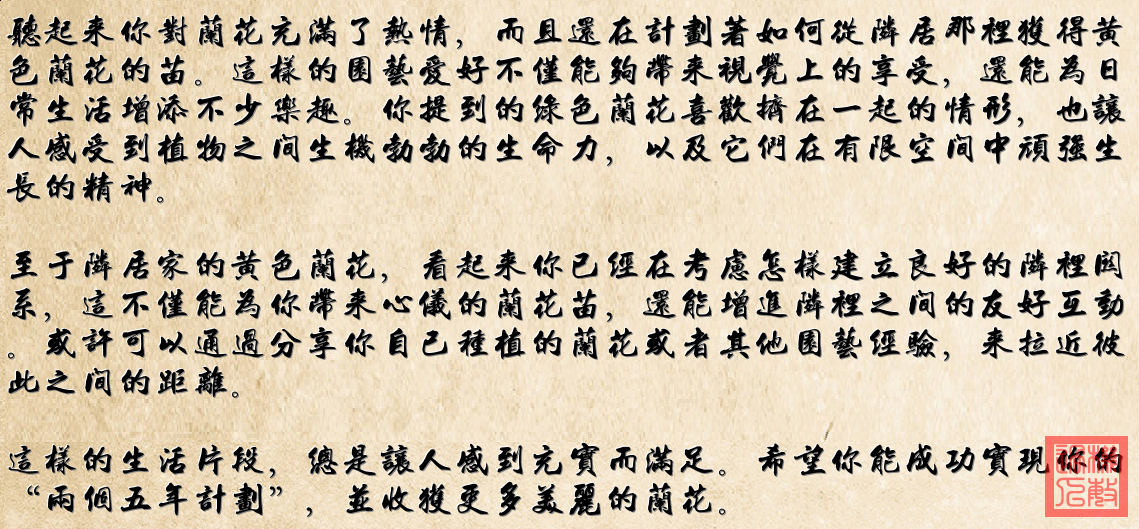 聽起来你對蘭花充滿了熱情，而且還在計劃著如何從隣居那裡獲得黄
色蘭花的苗。這樣的園藝愛好不僅能夠帶来視覺上的享受，還能為日
常生活增添不少樂趣。你提到的綠色蘭花喜歡擠在一起的情形，也讓
人感受到植物之间生機勃勃的生命力，以及它們在有限空间中頑強生
長的精神。
至于隣居家的黄色蘭花，看起来你已經在考慮怎樣建立良好的隣裡関
系，這不僅能為你帶来心儀的蘭花苗，還能增進隣裡之间的友好互動
。或許可以通過分享你自己種植的蘭花或者其他園藝經驗，来拉近彼
此之间的距離。
這樣的生活片段，總是讓人感到充實而滿足。希望你能成功實現你的
“兩個五年計劃”，並收獲更多美麗的蘭花。